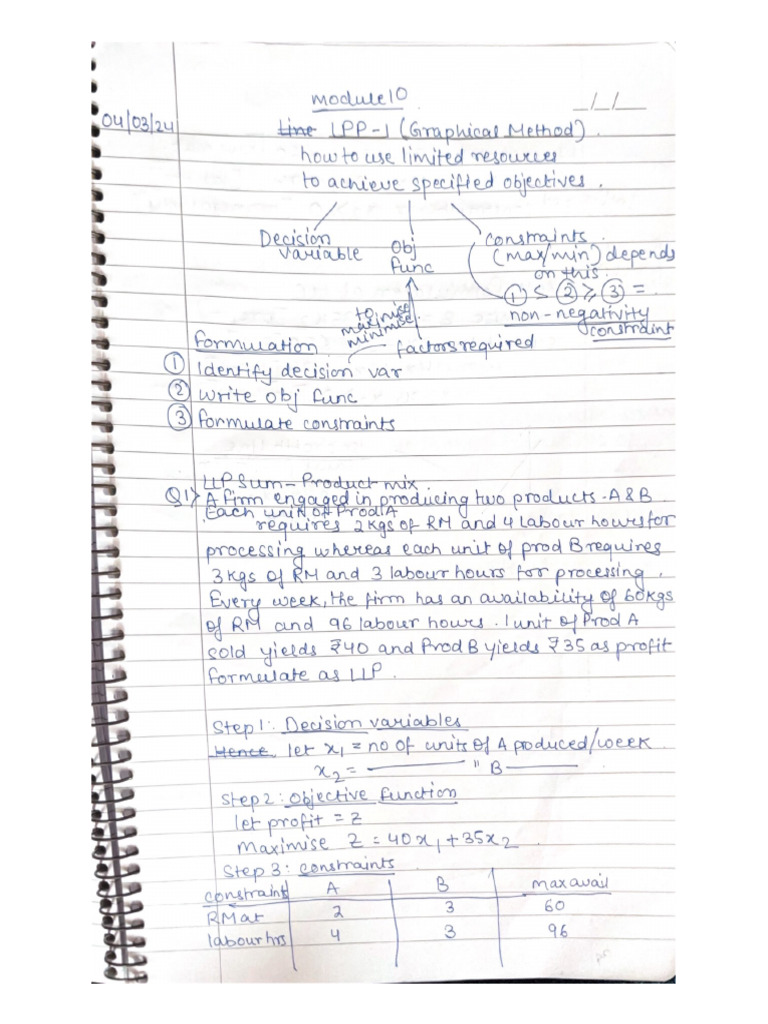 module 10
_/_/__
04/03/24
Line LPP-1 (Graphical Method).
how to use limited resources
to achieve specified objectives.
Decision variable
Obj func
constraints.
(max/min) depends
on this.
① ≤ ② ≥ ③ =
non-negativity
constraint
to maximise minimise
factors required
Formulation
① Identify decision var
② Write obj func
③ Formulate constraints
LLP Sum - Product mix.
Q1) A firm engaged in producing two products - A & B.
Each unit of Prod A
requires 2kgs of RM and 4 labour hours for
processing whereas each unit of prod B requires
3kgs of RM and 3 labour hours for processing.
Every week, the firm has an availability of 60kgs
of RM and 96 labour hours. 1 unit of Prod A
sold yields ₹40 and Prod B yields ₹35 as profit
formulate as LLP.
Step 1: Decision variables
Hence let x₁ = no of units of A produced/week
x₂ = ——— " B ———
Step 2: Objective function
let profit = Z
maximise Z = 40x₁ + 35x₂
Step 3: constraints
constraint A B max avail
RMat 2 3 60
labour hrs 4 3 96